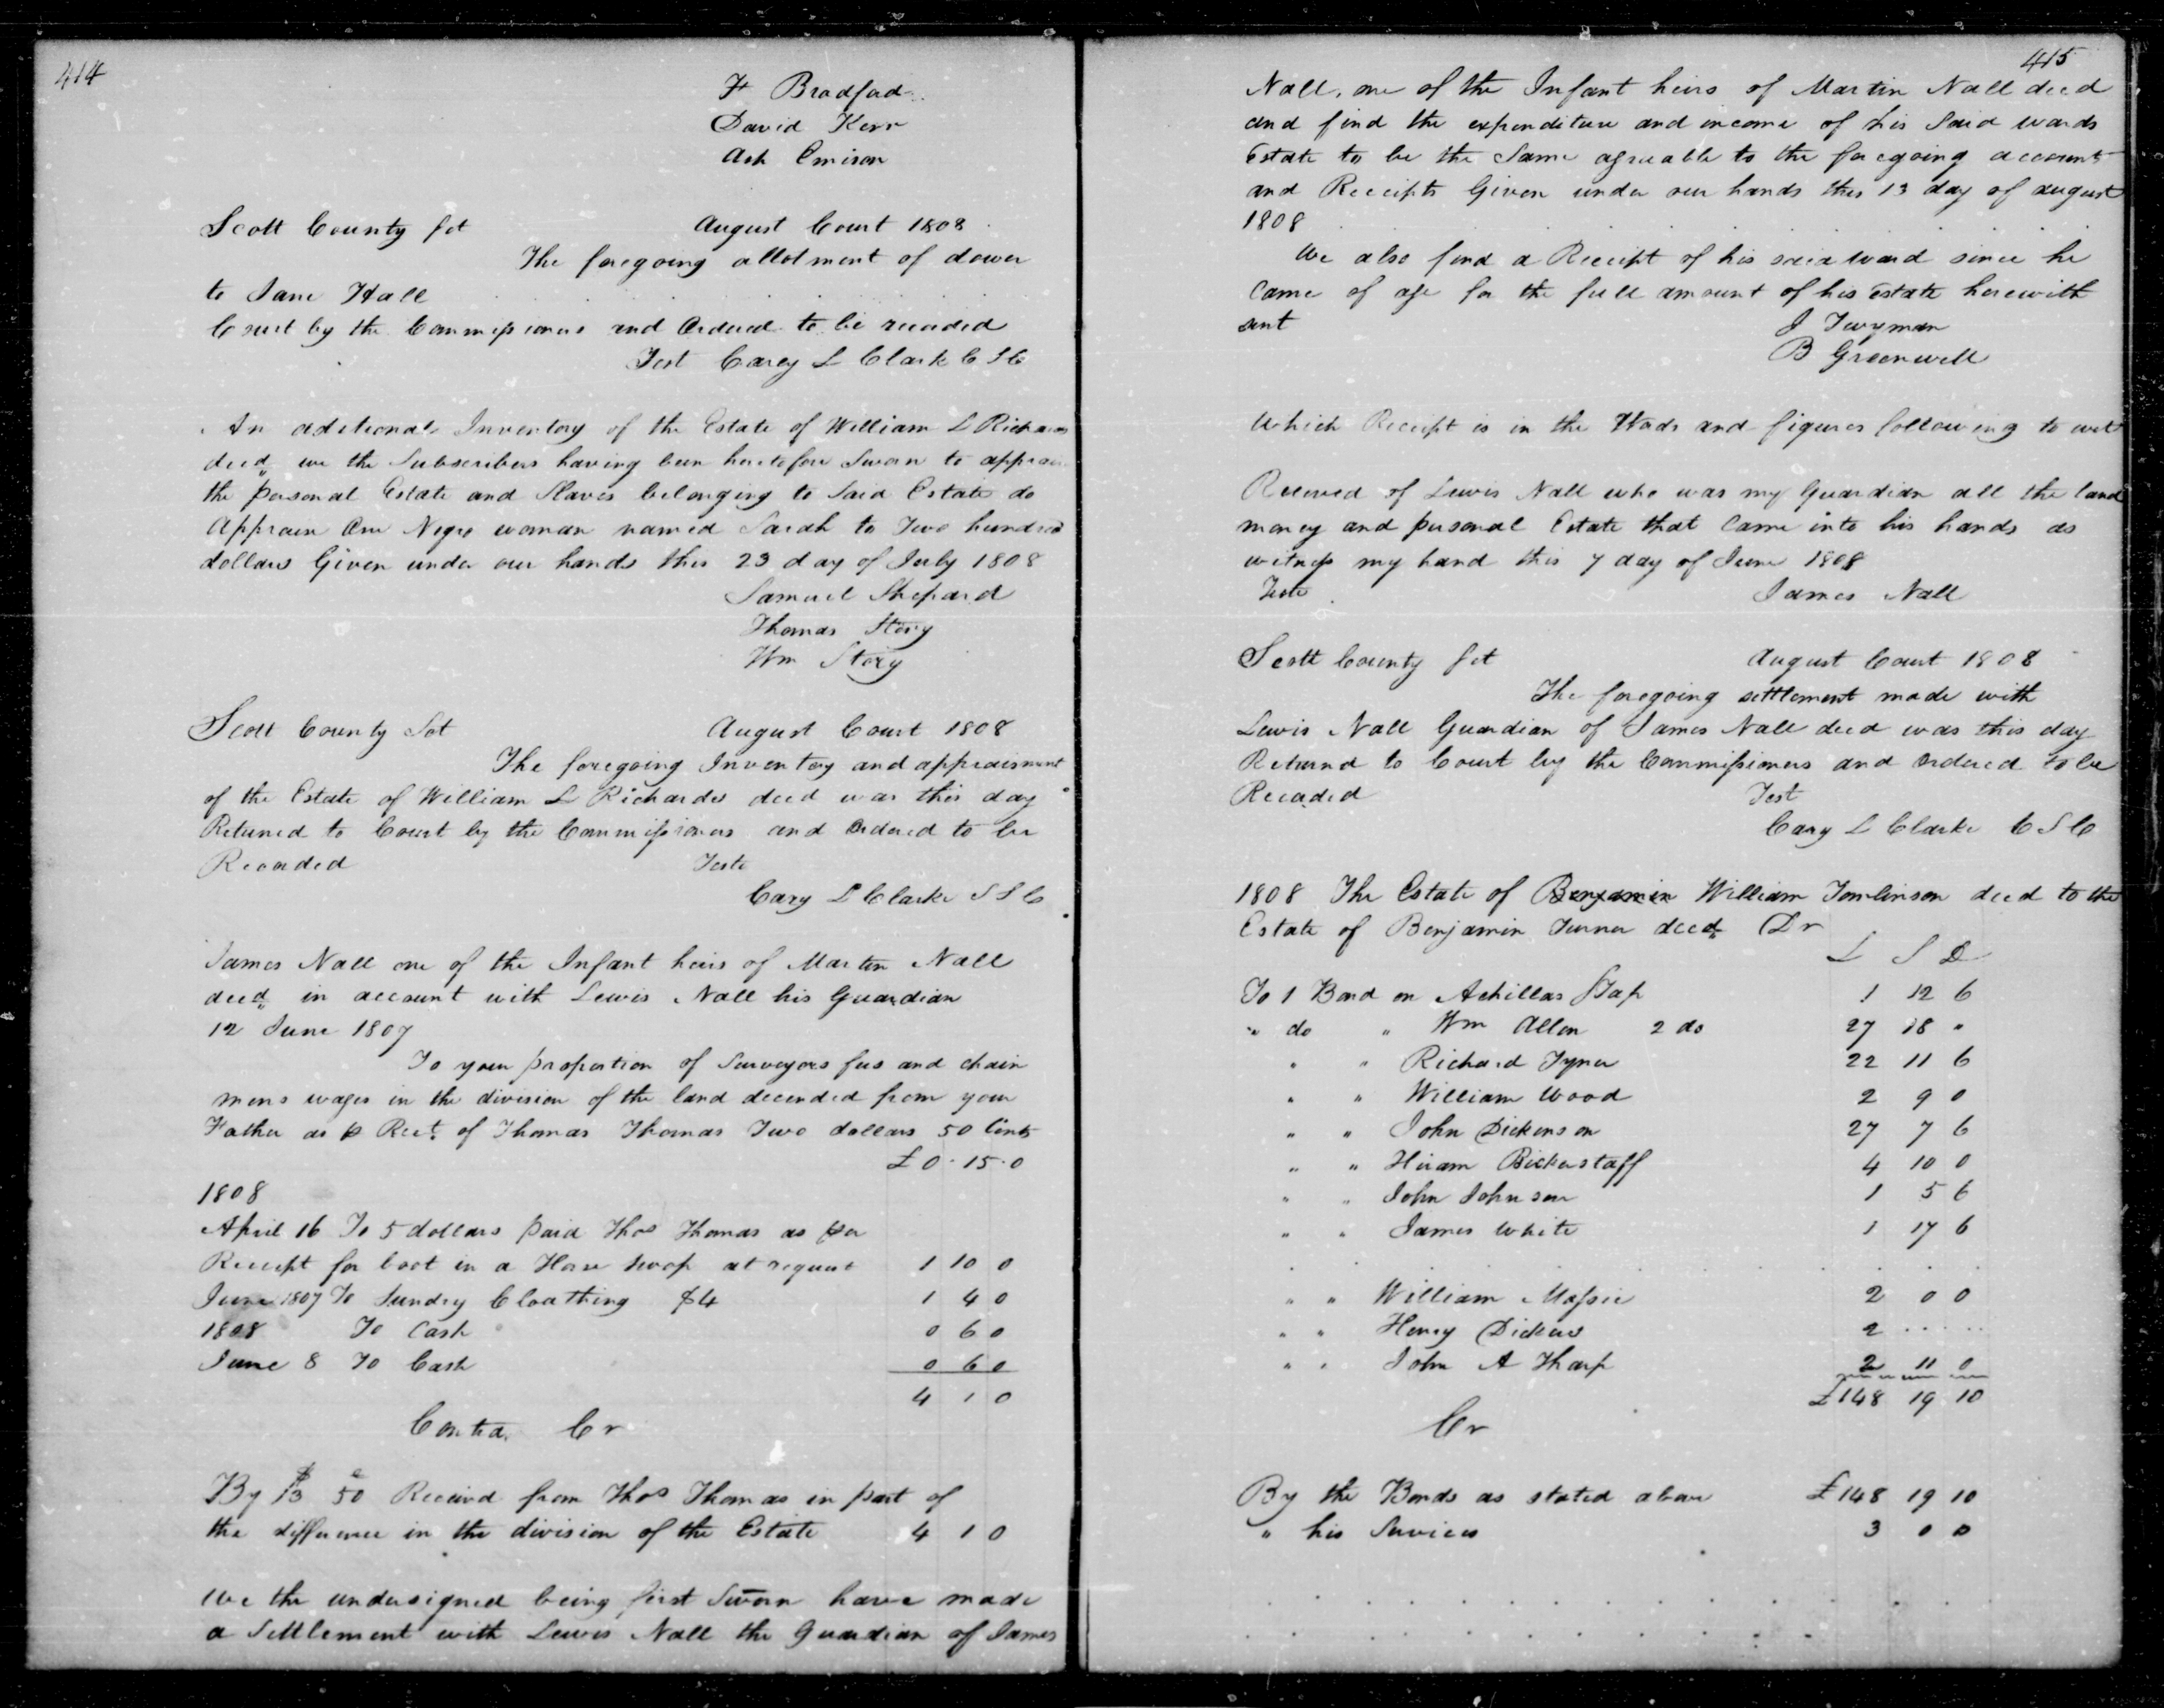 414
F Bradfud
David Kerr
Ash Emison
Scott County Sct August Court 1808
The foregoing allotment of dower
to Jane Hall . . . . . . . .
Court by the Commissioners and Ordered to be recorded
Test Carey L Clark C S C
An aditional Inventory of the Estate of William L Richards
decd we the Subscribers having been heretofore Sworn to apprais
the personal Estate and Slaves belonging to Said Estate do
Appraise One Negro woman named Sarah to Two hundred
dollars Given under our hands this 23 day of July 1808
Samuel Shepard
Thomas Story
Wm Story
Scott County Sct August Court 1808
The foregoing Inventory and appraisment
of the Estate of William L Richards decd was this day
Returned to Court by the Commissioners and Ordered to be
Recorded Teste
Cary L Clarke S S C
James Nall one of the Infant heirs of Martin Nall
decd in account with Lewis Nall his Guardian
12 June 1807
To your proportion of Surveyors fees and chain
mens wages in the division of the land decended from your
Father as p Rect of Thomas Thomas Two dollars 50 Cents
£ 0 . 15 . 0
1808
April 16 To 5 dollars paid Thos Thomas as per
Receipt for boot in a Horse swop at request 1 10 0
June 1807 To Sundry Cloathing $4 1 4 0
1808 To Cash 0 6 0
June 8 To Cash 0 6 0
4 1 0
Contra Cr
By $13 50 c Received from Thos Thomas in part of
the difference in the division of the Estate 4 1 0
We the undersigned being first Sworn have made
a Settlement with Lewis Nall the Guardian of James
415
Nall, one of the Infant heirs of Martin Nall decd
and find the expenditure and income of his Said wards
Estate to be the Same agreeable to the foregoing accounts
and Receipts Given under our hands this 13 day of august
1808
We also find a Receipt of his said ward since he
Came of age for the full amount of his Estate herewith
sent J Twyman
B Greenwell
Which Receipt is in the Words and figures following to wit
Received of Lewis Nall who was my Guardian all the land
money and personal Estate that Came into his hands as
witness my hand this 7 day of June 1808
Teste James Nall
Scott County Sct August Court 1808
The foregoing settlement made with
Lewis Nall Guardian of James Nall decd was this day
Returnd to Court by the Commissioners and Ordered to be
Recorded Test
Cary L Clarke C S C
1808 The Estate of Benjamin William Tomlinson decd to the
Estate of Benjamin Turner decd Dr
L S D
To 1 Bond on Achillas Stap 1 12 6
" do " Wm Allen 2 do 27 18 "
" " Richard Tyner 22 11 6
" " William Wood 2 9 0
" " John Dickenson 27 7 6
" " Hiram Bickerstaff 4 10 0
" " John Johnson 1 5 6
" " James White 1 17 6
. . . . . . . . . . . .
" " William Massie 2 0 0
" " Henry Dickens 2 . . . . .
" " John A Tharp 2 11 0
£148 19 10
Cr
By the Bonds as stated above £148 19 10
" his Services 3 0 0